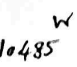 W
10485